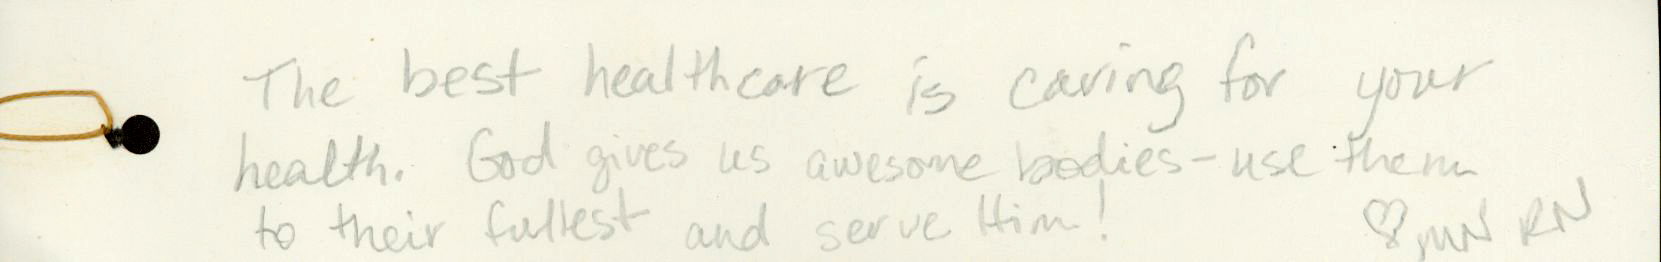 The best healthcare is caring for your
health. God gives us awesome bodies - use them
to their fullest and serve Him! ♡ RN